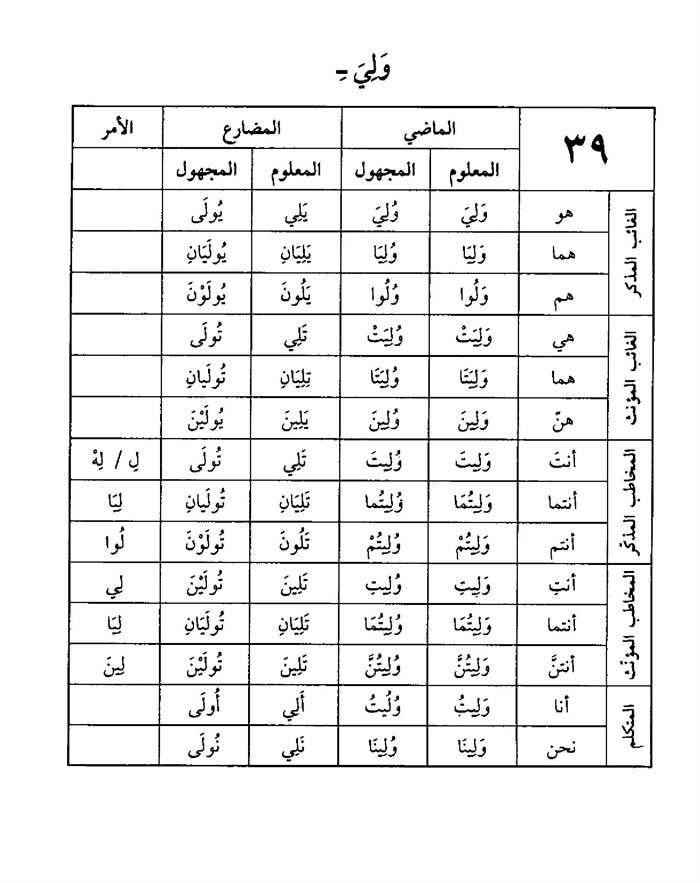 وَلِيَ ـِ
٣٩ الماضي المضارع الأمر
المعلوم المجهول المعلوم المجهول
الغائب المذكر
هو وَلِيَ وُلِيَ يَلِي يُولَى
هما وَلِيَا وُلِيَا يَلِيَانِ يُولَيَانِ
هم وَلُوا وُلُوا يَلُونَ يُولَوْنَ
الغائب المؤنث
هي وَلِيَتْ وُلِيَتْ تَلِي تُولَى
هما وَلِيَتَا وُلِيَتَا تِلِيَانِ تُولَيانِ
هنّ وَلِينَ وُلِينَ يَلِينَ يُولَيْنَ
المخاطب المذكر
أنتَ وَلِيتَ وُلِيتَ تَلِي تُولَى لِ / لِهْ
أنتما وَلِيتُمَا وُلِيتُما تَلِيَانِ تُولَيانِ لِيَا
أنتم وَلِيتُمْ وُلِيتُمْ تَلُونَ تُولَوْنَ لُوا
المخاطب المؤنث
أنتِ وَلِيتِ وُلِيتِ تَلِينَ تُولَيْنَ لِي
أنتما وَلِيتُمَا وُلِيتُمَا تَلِيَانِ تُولَيَانِ لِيَا
أنتنَّ وَلِيتُنَّ وُلِيتُنَّ تَلِينَ تُولَيْنَ لِينَ
المتكلم
أنا وَلِيتُ وُلُيتُ أَلِي أُولَى
نحن وَلِينَا وُلِينَا نَلِي نُولَى